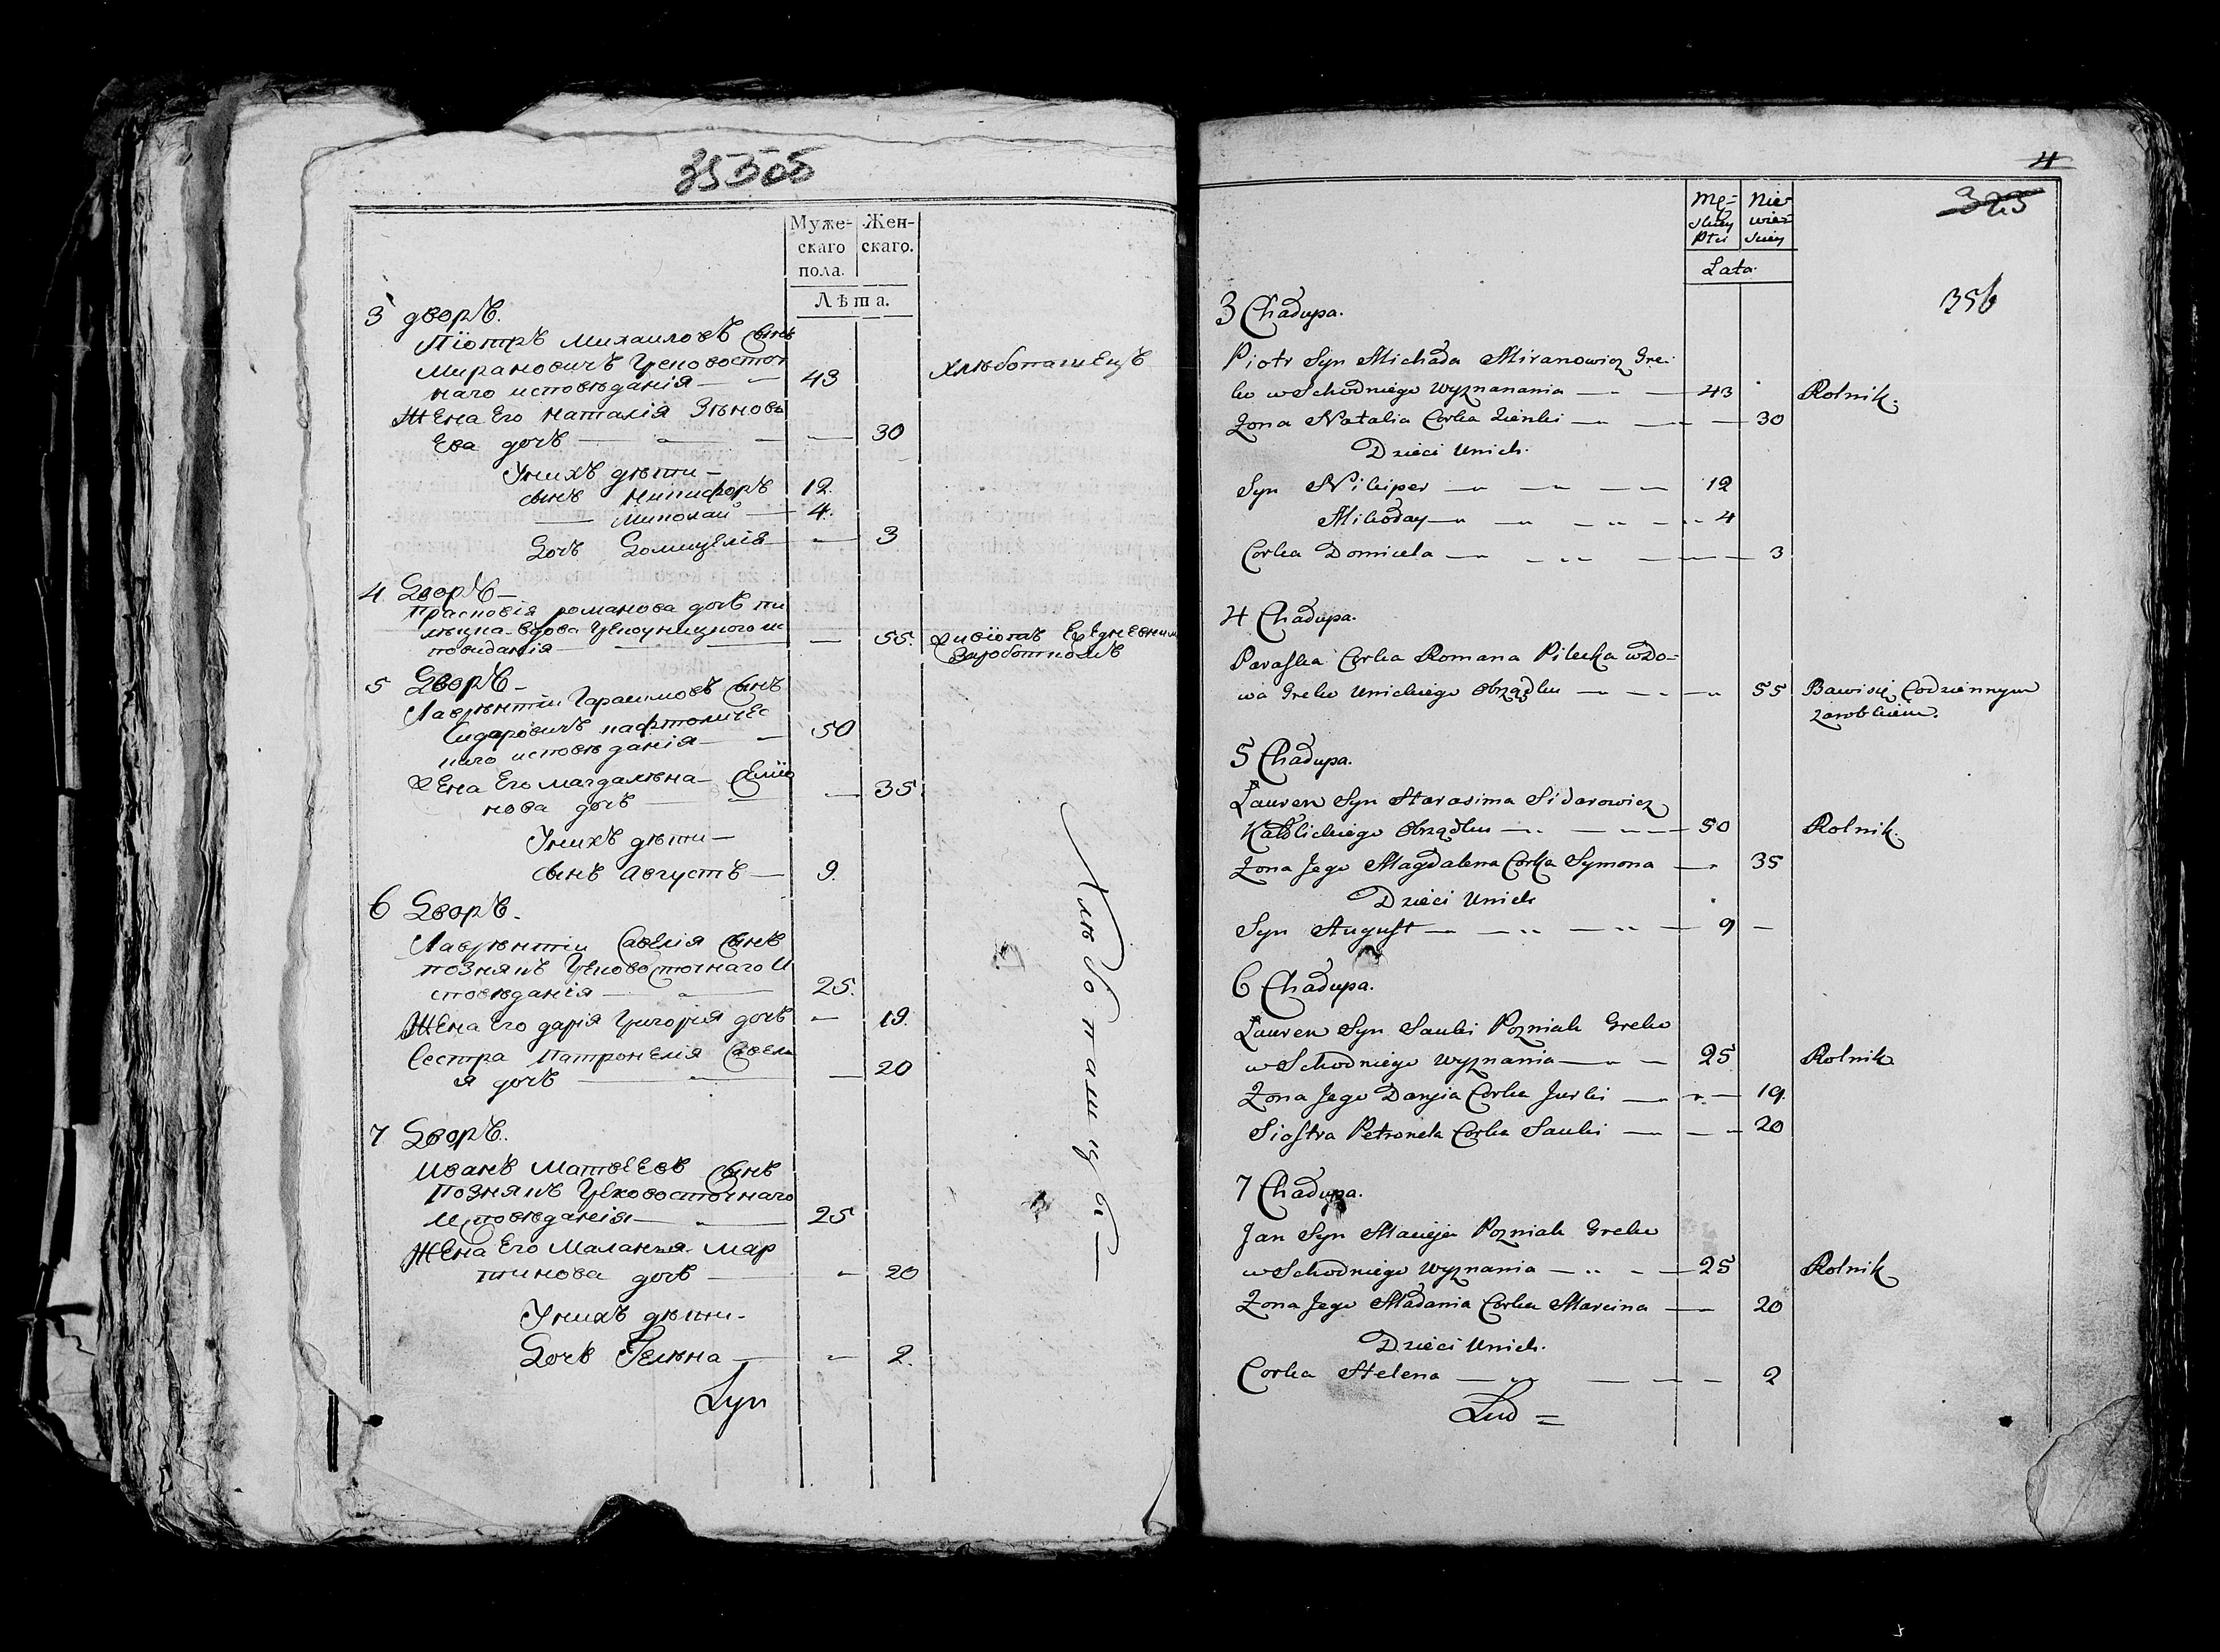 Муже-
скаго
пола.
Жен-
скаго.
Лѣта.
3 дворъ.
Піотръ Михаиловъ сынъ
Мирановичъ Грековосточ
наго исповѣданія — — 43 хлѣбопашецъ
Жена Его Наталія Зѣнова
Ева дочь — — — 30
У нихъ дѣти —
сынъ Никифоръ 12.
— Миколай — 4.
Дочь Домицелія — — 3
4 Дворъ —
Прасковія романова дочь пи
лецка вдова Грекоуницкого ис
поведанія — — — 55.
Заработкомъ
5 Дворъ —
Лаврѣнтій Гарасимовъ сынъ
Сидаровичъ
наго исповѣданія — — 50
Жена Его магдалѣна Симо
нова дочь — — — 35
У нихъ дѣти —
сынъ Августъ — 9.
6 Дворъ.
Лаврѣнтій Савелія сынъ
Познякъ Грековосточнаго И
сповѣданія — — 25.
Жена Его дарія Григорія дочь — 19.
Сестра Патронелія Савели
я дочь — — — 20
7 Дворъ.
Иванъ Матвеевъ сынъ
Познякъ Грековосточнаго
Исповѣданія — — 25
Жена Его Маланья Мар
тинова дочь — — 20
У нихъ дѣти —
Дочь Гелѣна — — 2.
Lyn
Хлѣбопашцы
4
325
356
Mę=
skiey
Płci
Nie=
wieś
skiey
Lata
3 Chałupa.
Piotr Syn Michała Miranowicz Gre:
ko wSchodniego Wyznanania — — 43 Rolnik.
Zona Natalia Corka Zienki — — — 30
Dzieci Unich.
Syn Nikiper — — — — 12
Mikołay — — — — 4
Corka Domicela — — — — 3
4 Chałupa.
Paraska Corka Romana Pilecka wdo=
wa Greko Unickiego Obrządku — — — 55 Bawisię Codziennym
zarobkiem.
5 Chałupa.
Lauren Syn Harasima Sidarowicz
Katolickiego Obrządku — — — 50 Rolnik.
Zona Jego Magdalena Corka Symona — 35
Dzieci Unich
Syn August — — — — 9 —
6 Chałupa.
Lauren Syn Sauki Pozniak Greko
wSchodniego Wyznania — — 25 Rolnik
Zona Jego Daryia Corka Jurki — — 19.
Siostra Petronela Corka Sauki — — 20
7 Chałupa.
Jan Syn Macieja Pozniak Greko
wSchodniego Wyznania — — — 25 Rolnik
Zona Jego Małania Corka Marcina — 20
Dzieci Unich.
Corka Helena — — — — 2
Lud =